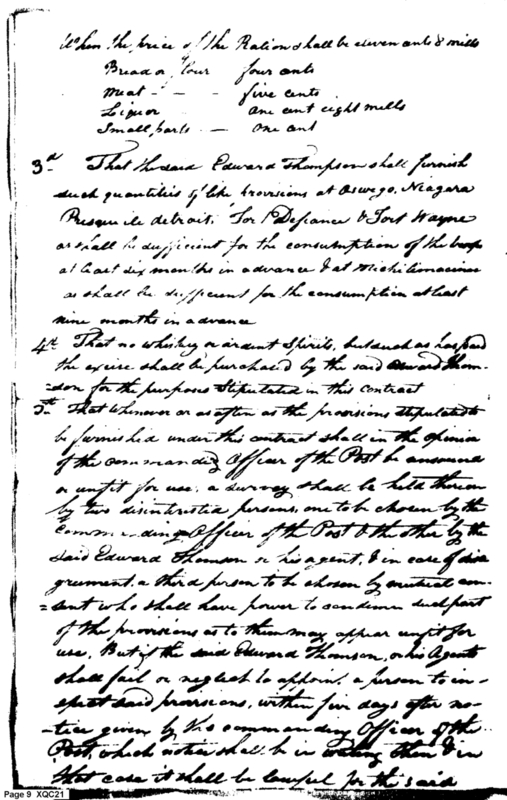 When the price of the Ration shall be eleven cents 8 mills
Bread or flour four cents
Meat - - - five cents
Liquor one cent eight mills
Small parts - one cent
3d That the said Edward Thompson shall furnish
such quantities of like provisions at Oswego, Niagara
Presqu ile detroit, Fort Defiance & Fort Wayne
as shall be sufficient for the consumption of the troops
at least six months in advance & at Michilimacinac
as shall be sufficient for the consumption at least
nine months in advance
4th That no whiskey or ardent Spirits, but such as has paid
the excise shall be purchased by the said Edward Thom-
=son for the purposes Stipulated in this Contract
5th That whenever or as often as the provisions stipulated to
be furnished under this contract shall in the opinion
of the commanding Officer of the Post be unsound
or unfit for use, a survey shall be held thereon
by two disinterested persons, one to be chosen by the
Commanding Officer of the Post & the other by the
said Edward Thomson or his agent, & in case of disa
greement, a third person to be chosen by mutual con-
=sent who shall have power to condemn such part
of the provisions as to them may appear unfit for
use, But if the said Edward Thomson, or his Agents
shall fail or neglect to appoint, a person to in-
spect said provisions, within five days after no-
-tice given by the commanding Officer of the
Post, which notice shall be in writing then & in
that case it shall be lawful for the said
Page 9 XQC21